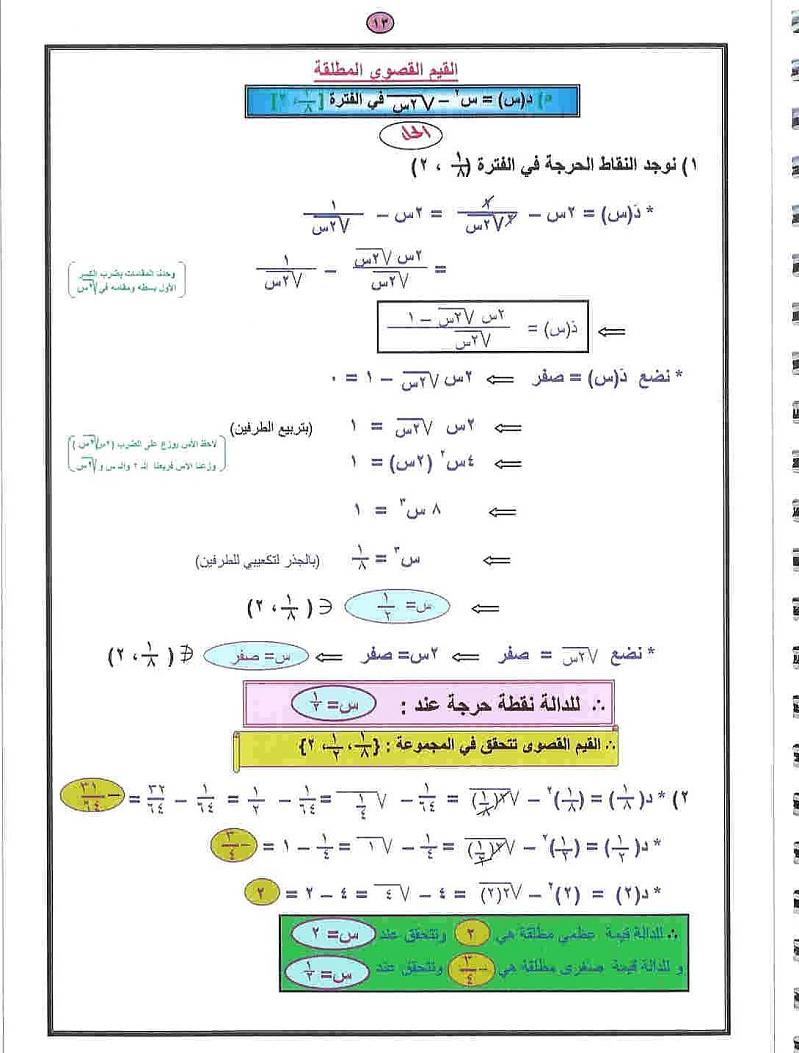 ١٣
القيم القصوى المطلقة
م) د(س) = س٢ − √٢س في الفترة [١/٨ ، ٢]
الحل
١) نوجد النقاط الحرجة في الفترة (١/٨ ، ٢)
* دَ(س) = ٢س − ٢/٢√٢س = ٢س − ١/√٢س
= ٢س √٢س/√٢س − ١/√٢س
وحدنا المقامات بضرب الكسر
الأول بسطه ومقامه في √٢س
⇐ دَ(س) = ٢س √٢س − ١/√٢س
* نضع دَ(س) = صفر ⇐ ٢س √٢س − ١ = ٠
⇐ ٢س √٢س = ١ (بتربيع الطرفين)
لاحظ الأس يوزع على الضرب (٢س√٢س)
وزعنا الأس فربعنا الـ ٢ والـ س و √٢س
⇐ ٤س٢ (٢س) = ١
⇐ ٨ س٣ = ١
⇐ س٣ = ١/٨ (بالجذر لتكعيبي للطرفين)
⇐ س= ١/٢ ∋ (١/٨ ، ٢)
* نضع √٢س = صفر ⇐ ٢س= صفر ⇐ س= صفر ∌ (١/٨ ، ٢)
∴ للدالة نقطة حرجة عند : س= ١/٢
∴ القيم القصوى تتحقق في المجموعة : {١/٨ ، ١/٢ ، ٢}
٢) * د(١/٨) = (١/٨)٢ − √٢(١/٨) = ١/٦٤ − √١/٤ = ١/٦٤ − ١/٢ = ١/٦٤ − ٣٢/٦٤ = −٣١/٦٤
* د(١/٢) = (١/٢)٢ − √٢(١/٢) = ١/٤ − √١ = ١/٤ − ١ = −٣/٤
* د(٢) = (٢)٢ − √٢(٢) = ٤ − √٤ = ٤ − ٢ = ٢
∴ للدالة قيمة عظمى مطلقة هي ٢ وتتحقق عند س= ٢
و للدالة قيمة صغرى مطلقة هي −٣/٤ وتتحقق عند س= ١/٢